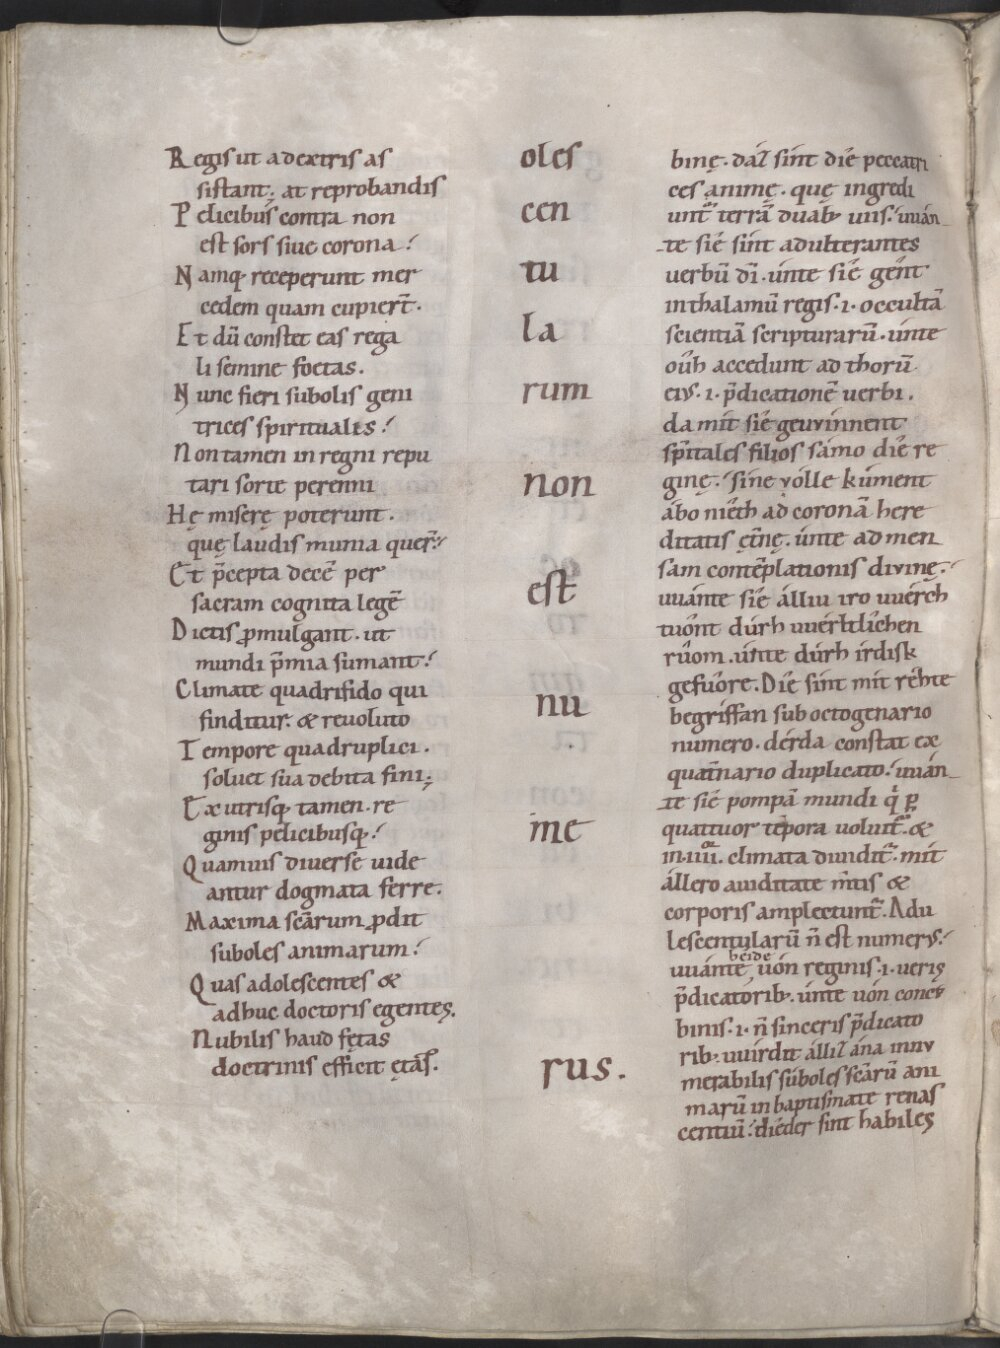 Regis ut adextris as
sistant; at reprobandis
Pelicibus contra non
est sors siue corona?
Namq; receperunt mer
cedem quam cupier̄t.
Et dū constet eas rega
li semine foetas.
Nunc fieri subolis geni
trices spiritualis?
Non tamen in regni repu
tari sorte perenni
Hę miserę poterunt.
quę laudis munia quer̄?
Et p̄cepta decē per
sacram cognita legē
Dictis promulgant. ut
mundi p̄mia sumant?
Climate quadrifido qui
finditur. & reuoluto
Tempore quadruplici.
soluet sua debita fini;
Ex utrisq; tamen. re
ginis pelicibusq;?
Quamuis diuerse uide
antur dogmata ferre.
Maxima sc̄arum prodit
suboles animarum?
Quas adolescentes &
adhuc doctoris egentes.
Nubilis haud fętas
doctrinis efficit ętas̄.
oles
cen
tu
la
rum
non
est
nu
me
rus.
binę. dáz sint díe peccatri
ces animę. quę ingredi
unt̄ terrā duab; uiis. uuán
te síe sint adulterantes
uerbū dī. únte síe gént
in thalamū regis .i. occultā
scientiā scripturarū. únte
oûh accedunt ad thorū
eius .i. p̄dicationē uerbi.
da mit síe geuuinnent
sp̄itales filios sámo díe re
ginę. síne uólle kúment
ábo níeth ad coronā here
ditatis ęt̄nę. únte ad men
sam contēplationis diuinę.
uuánte síe álliu íro uuérch
tuônt dúrh uuértlîchen
rûom. únte dúrh írdisk
gefuôre. Díe sint mit réhte
begriffan sub octogenario
numero. dér da constat ex
quat̄nario duplicato. uuán
te síe pompā mundi q̄ p
quattuor tēpora uoluit̄. &
in .iiii. climata diuidit̄. mít
állero auiditate m̄tis &
corporis amplectunt̄. Adu
lescentularū n̄ est numerus.
béide
uuánte uón reginis .i. ueris
p̄dicatorib;. únte uón concu
binis .i. n̄ sinceris p̄dicato
rib; uuírdit állizána innu
merabilis suboles sc̄arū ani
marū in baptismate renas
centiū. díeder sint habiles